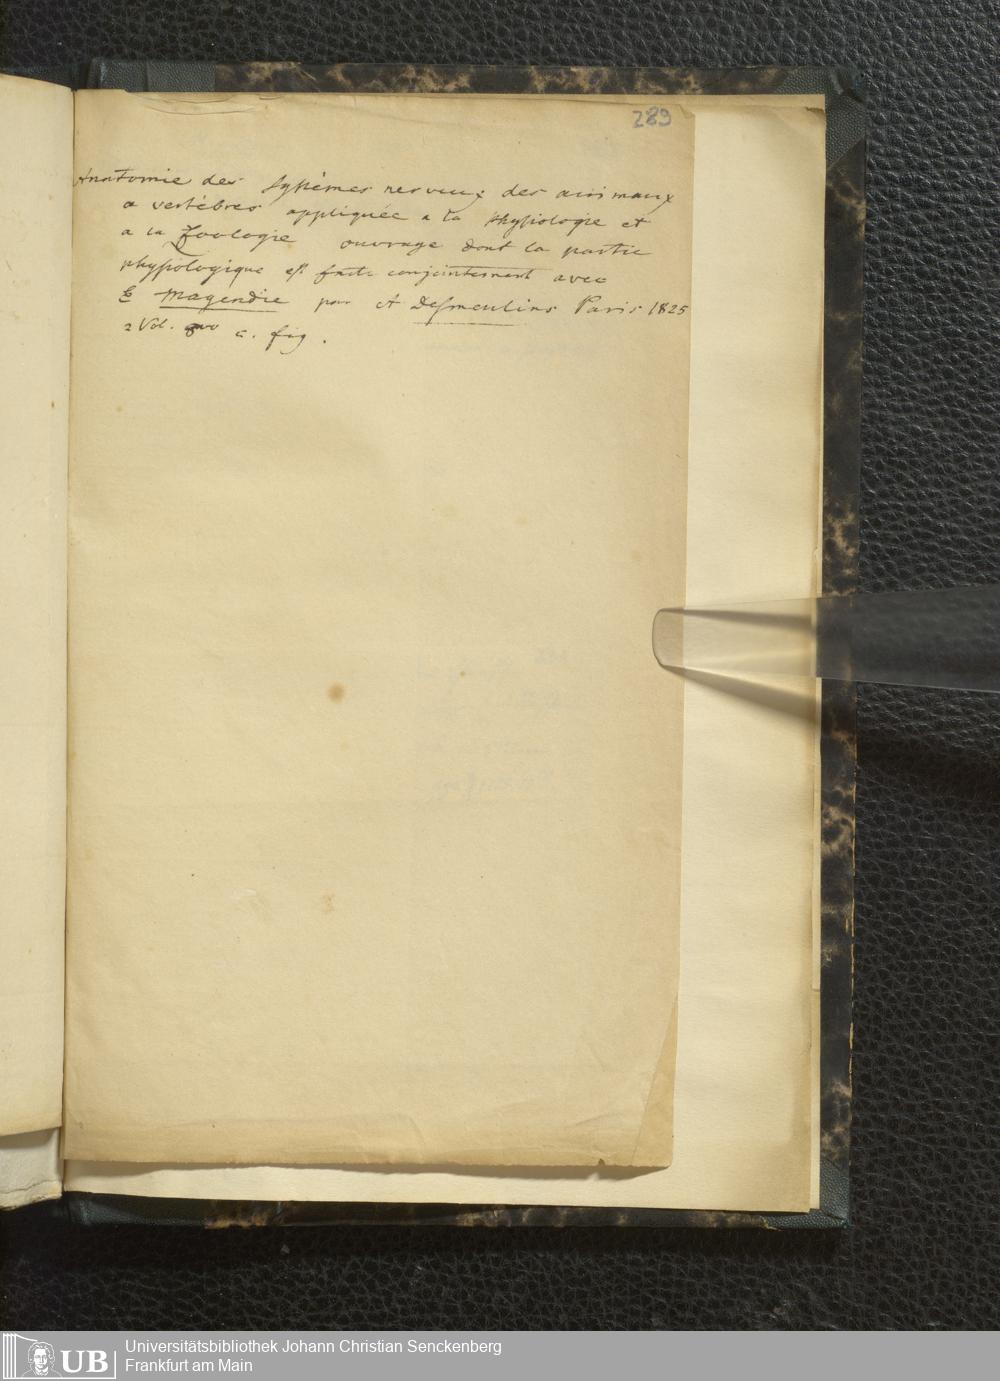 289
Anatomie des Systèmes nerveux des animaux
a vertébres appliquée a la physiologie et
a la Zoologie ouvrage dont la partie
physiologique est faite conjointement avec
Magendie par A Desmoulins Paris 1825
2 Vol. 8vo c. fig.
UB
Universitätsbibliothek Johann Christian Senckenberg
Frankfurt am Main